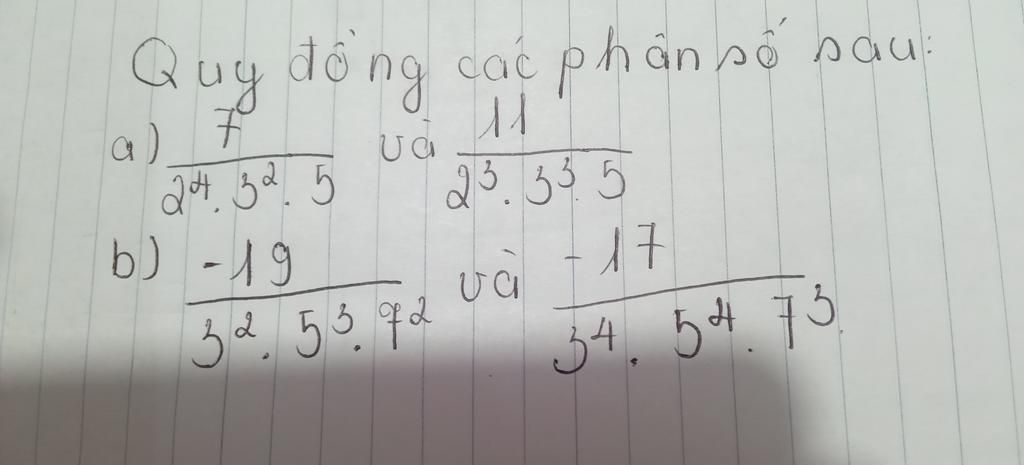 Quy đồng các phân số sau:
a) 7/(2⁴. 3². 5) và 11/(2³. 3³. 5)
b) -19/(3². 5³. 7²) và -17/(3⁴. 5⁴. 7³)